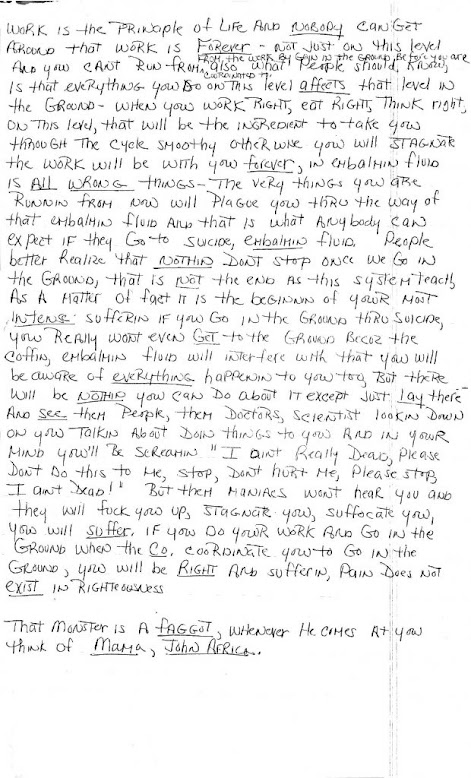 WORK is the PRINCIPLE of LIFE AND NOBODY CAN GET
AROUND that WORK IS FOREVER - NOT JUST ON this level
FROM the WORK BY GOIN IN the GROUND BEFORE you ARE
AND you CAN'T RUN FROM, also what People should KNOW,
COORDINATED to
Is that everything you DO ON this level affects that level in
the GROUND - WHEN you WORK RIGHT, eat RIGHT, THINK right,
ON This level, that will be the INGREDIENT to take you
through The cycle smoothy otherwise you will STAGNATE
the WORK will be with you forever, IN EMBALMIN fluid
IS ALL WRONG things - The very things you ARE
RUNNIN FROM NOW will Plague you thru the way of
that EMBALMIN fluid AND that is what ANybody CAN
expect IF they Go to SUICIDE, EMBALMIN fluid. People
better Realize that NOTHIN DONT STOP ONCE we Go in
the GROUND, that is NOT the END AS this system teach,
AS A Matter of fact IT is the BEGINNIN of YOUR MOST
INTENSE SUFFERIN IF you Go IN the GROUND thru SUICIDE,
you REALLY wont even GET to the GROUND BECOZ the
COFFIN, EMBALMIN fluid will interfere with that you will
be AWARE of EVERYTHING happenin to you too, But there
will be NOTHIN you CAN Do about IT except Just Lay there
AND SEE them People, them DOCTORS, SCIENTIST lookin Down
ON you TALKIN ABOUT DOIN things to you AND IN YOUR
MIND you'll Be SCREAMIN "I aint Really Dead, Please
DONT Do this to Me, stop, DONT hurt Me, Please stop,
I AINT DEAD!" But them MANIACS WONT hear you AND
they will fuck you up, STAGNATE you, suffocate you,
you will suffer. IF you Do your WORK AND GO IN the
GROUND WHEN the Co. COORDINATE you to Go IN the
GROUND, you will be RIGHT AND SUFFERIN, PAIN Does NOT
exist IN RIGHTEOUSNESS
That MONSTER is A FAGGOT, WHENEVER He COMES AT you
think of MAMA, JOHN AFRICA.